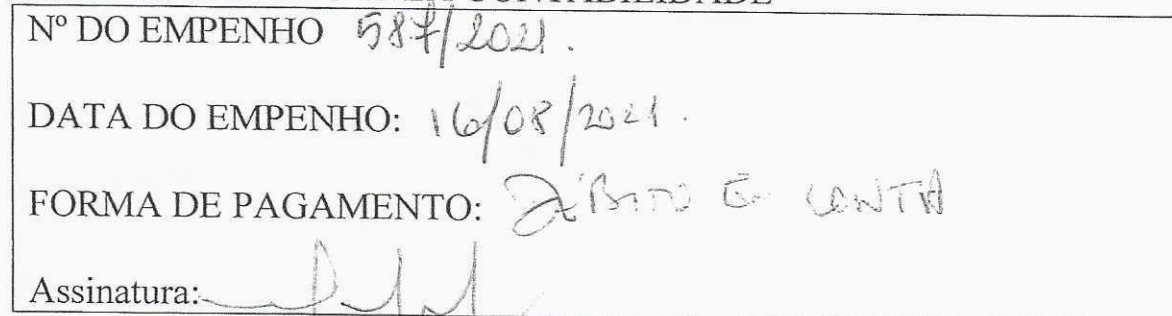 CONTABILIDADE
Nº DO EMPENHO 587/2021.
DATA DO EMPENHO: 16/08/2021.
FORMA DE PAGAMENTO: DÉBITO E CONTA
Assinatura: